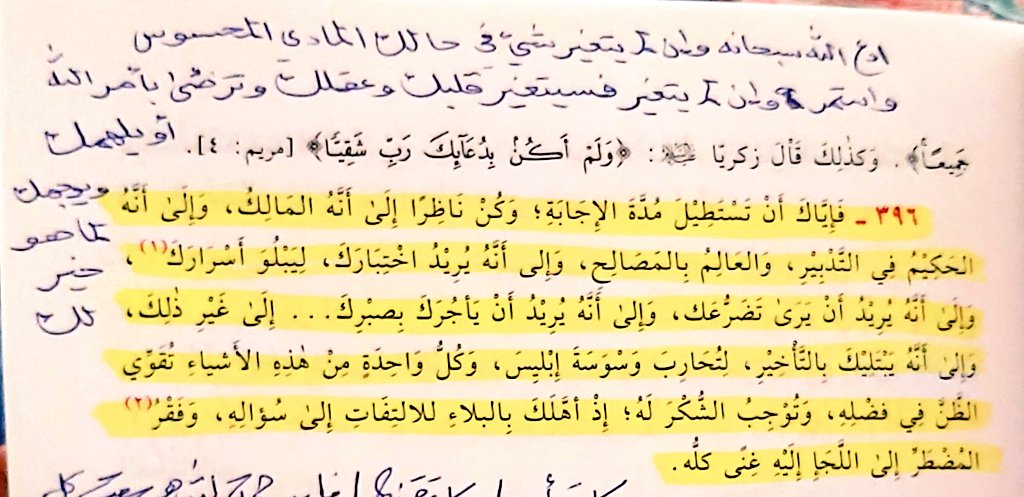 ادع الله سبحانه وإن لم يتغير شيئ في حالك المادي المحسوس
واستمر وإن لم يتغير فسيتغير قلبك وعقلك وترضى بأمر الله
أو يلهمك
ويوجهك
لما هو
خير
لك
جَمِيعًا﴾. وَكَذٰلِكَ قَالَ زكريّا ﷺ: ﴿وَلَمْ أَكُنْ بِدُعَآئِكَ رَبِّ شَقِيًّا﴾ [مريم: ٤].
٣٩٦ - فَإِيَّاكَ أَنْ تَسْتَطِيْلَ مُدَّةَ الإِجَابَةِ؛ وَكُنْ نَاظِرًا إِلَىٰ أَنَّهُ المَالِكُ، وَإِلَىٰ أَنَّهُ
الحَكِيْمُ فِي التَّدْبِيْرِ، وَالعَالِمُ بِالمَصَالِحِ، وَإِلى أَنَّهُ يُرِيْدُ اخْتِبَارَكَ، لِيَبْلُوَ أَسْرَارَكَ(١)،
وَإِلَىٰ أَنَّهُ يُرِيْدُ أَنْ يَرَىٰ تَضَرُّعَك، وَإِلىٰ أَنَّهُ يُرِيْدُ أَنْ يَأجُرَكَ بِصبْرِكَ... إِلَىٰ غَيْرِ ذٰلِكَ،
وَإِلىٰ أَنَّهُ يَبْتَلِيْكَ بِالتَّأْخِيْرِ، لِتُحَارِبَ وَسْوَسَةَ إِبْلِيسَ، وَكُلُّ وَاحِدَةٍ مِنْ هٰذِهِ الأَشياءِ تُقَوِّي
الظَّنَّ فِي فضْلِهِ، وَتُوْجِبُ الشُّكْرَ لَهُ؛ إِذْ أَهَّلَكَ بِالبلاءِ للالتِفَاتِ إِلىٰ سُؤالِهِ، وَفَقْرُ(٢)
المُضْطَرِّ إِلىٰ اللَّجَإِ إِلَيْهِ غِنًى كلُّه.